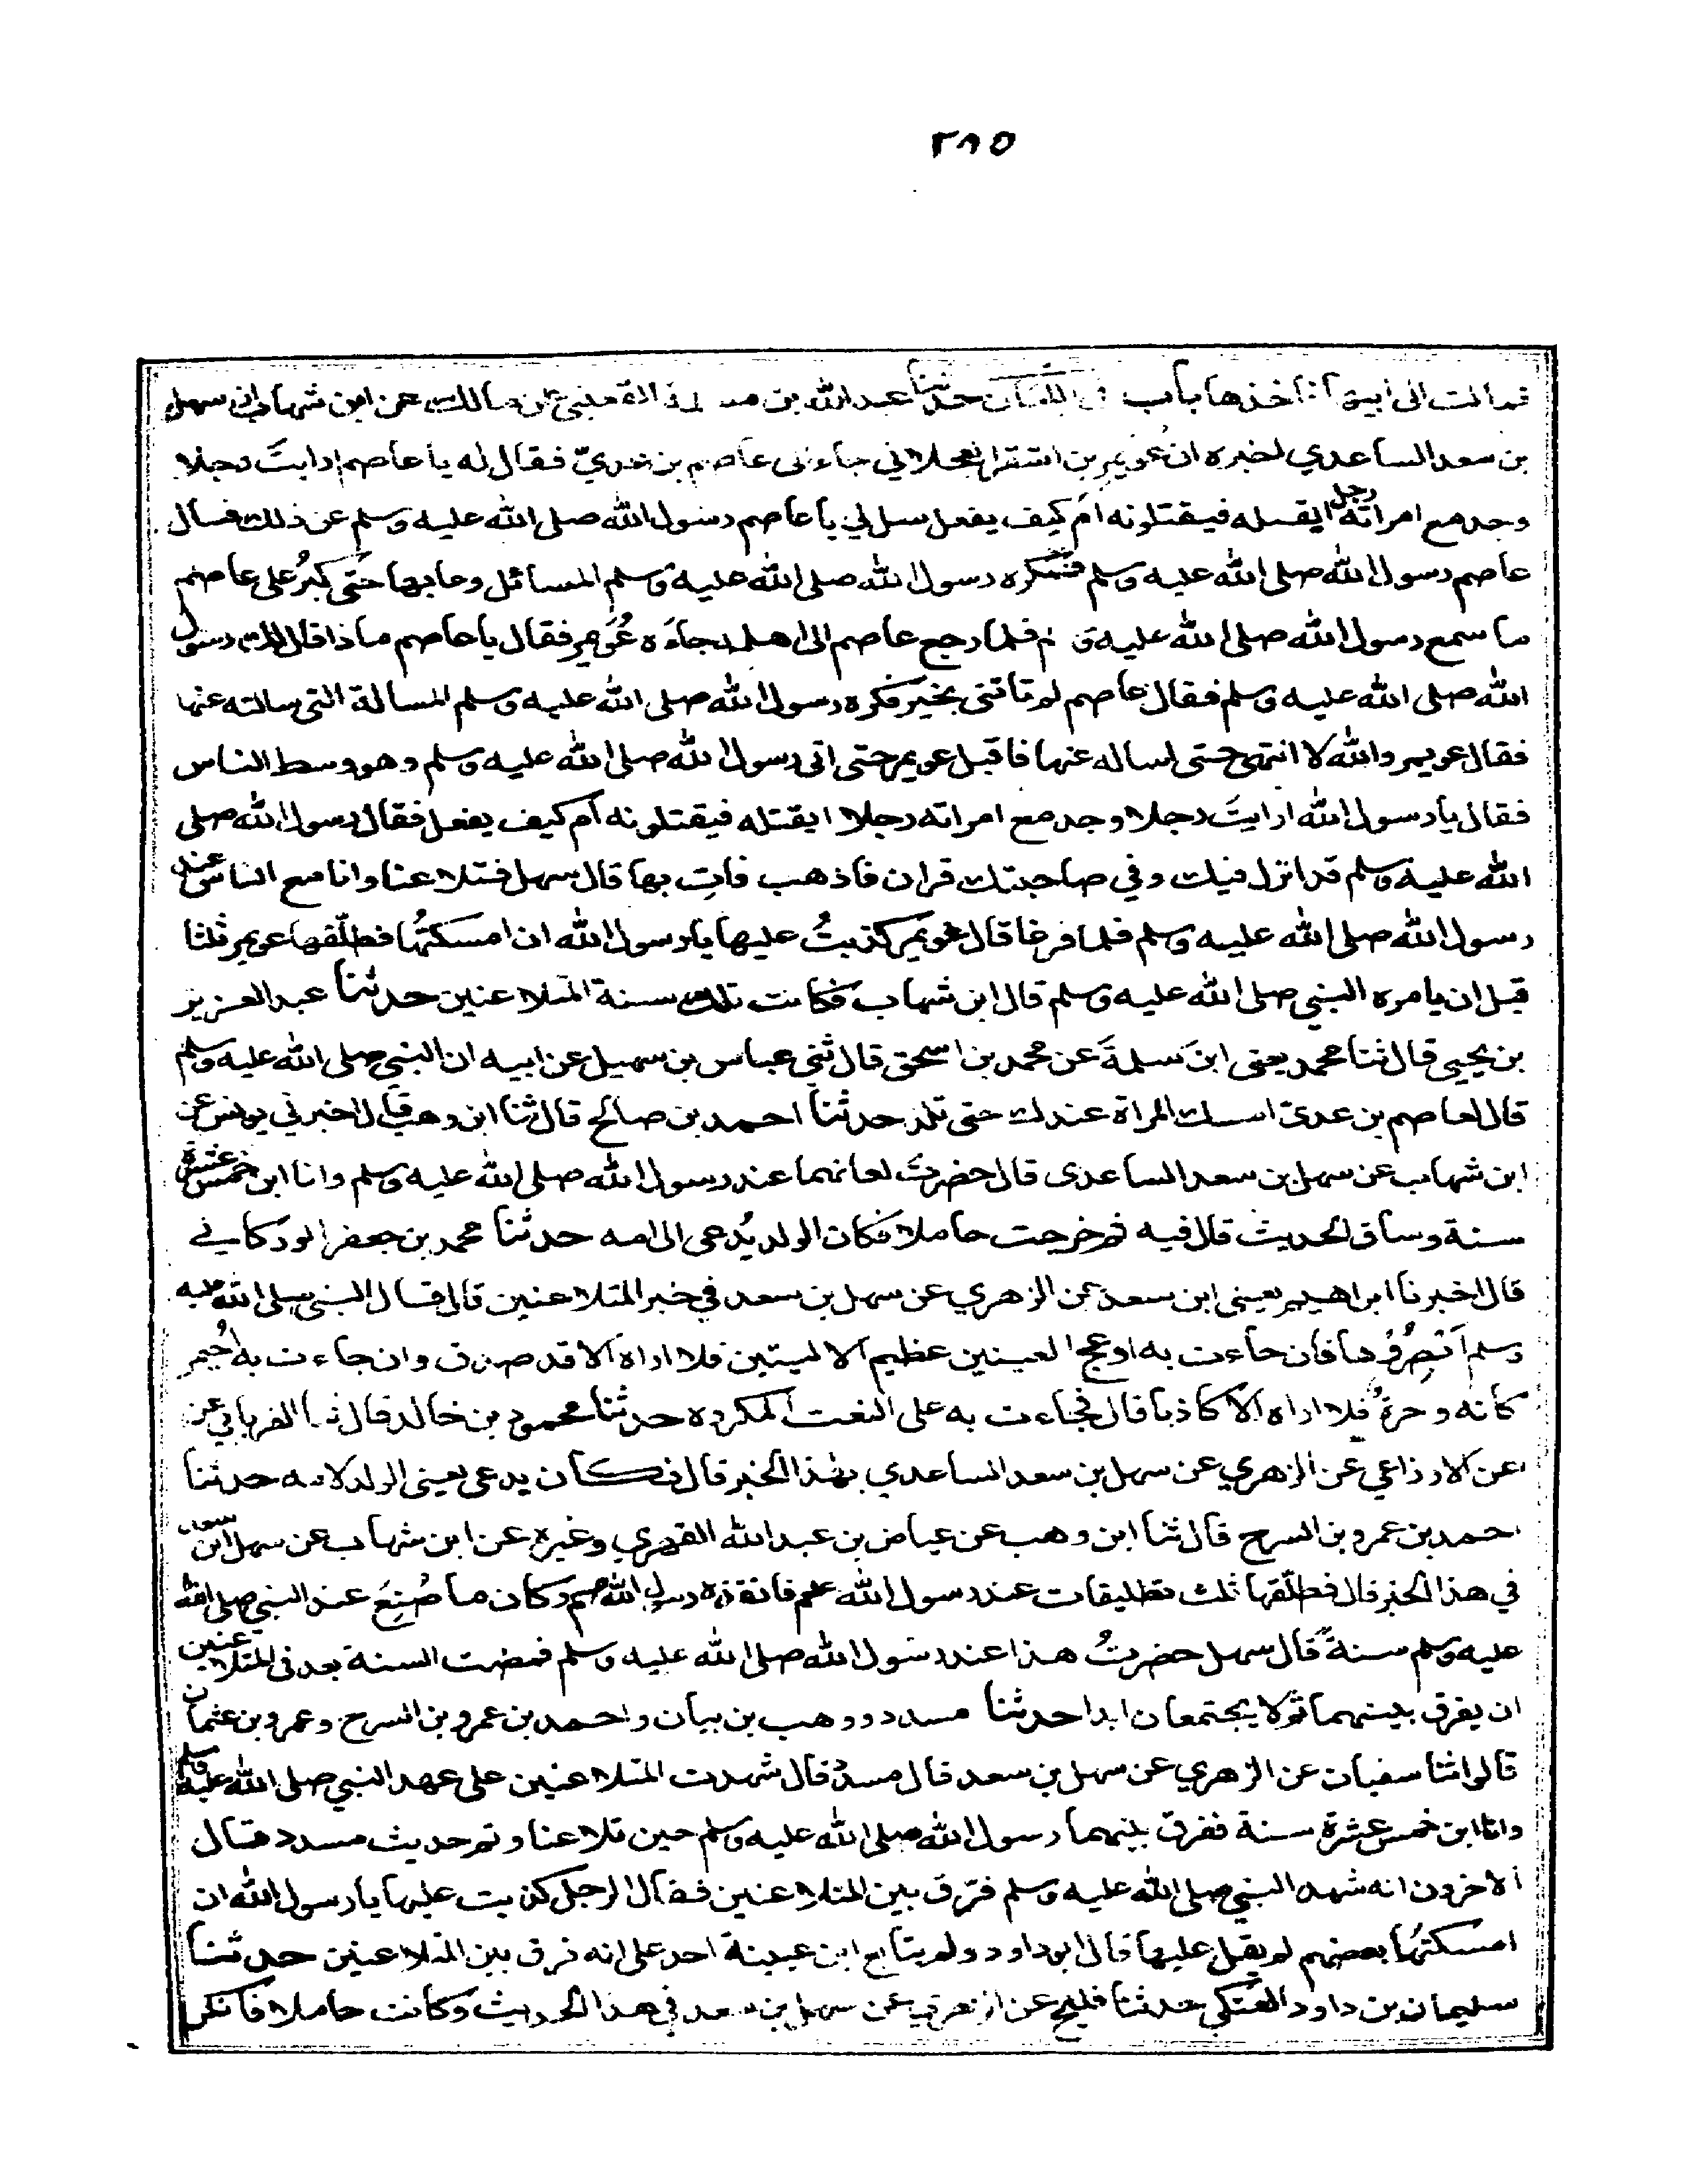 ٢٨٥
فمالت الى ابيها فاخذها باب في اللعان حدثنا عبد الله بن مسلمة القعنبي عن مالك عن ابن شهاب ان سهل
بن سعد الساعدي اخبره ان عويمر بن اشقر العجلاني جاء الى عاصم بن عديّ فقال له يا عاصم ارايتَ رجلا
وجد مع امراته رجل ايقتله فيقتلونه ام كيف يفعل سل لي يا عاصم رسول الله صلى الله عليه وسلم عن ذلك فسال
عاصم رسول الله صلى الله عليه وسلم فكره رسول الله صلى الله عليه وسلم المسائل وعابها حتى كبُر على عاصم
ما سمع رسول الله صلى الله عليه فلما رجع عاصم الى اهله جاءَه عُوَيمر فقال يا عاصم ماذا قال لك رسول
الله صلى الله عليه وسلم فقال عاصم لم تاتنى بخير فكره رسول الله صلى الله عليه وسلم المسالة التى سالته عنها
فقال عويمر والله لا انتهى حتى اساله عنها فاقبل عويمر حتى اتى رسول الله صلى الله عليه وسلم وهو وسط الناس
فقال يا رسول الله ارايتَ رجلا وجد مع امراته رجلا ايقتله فيقتلونه ام كيف يفعل فقال رسول الله صلى
الله عليه وسلم قد انزل فيك وفي صاحبتك قران فاذهب فاتِ بها قال سهل فتلاعنا وانا مع الناس عند
رسول الله صلى الله عليه وسلم فلما فرغا قال عويمر كذبتُ عليها يا رسول الله ان امسكتُها فطلّقها عويمر ثلثا
قبل ان يامره النبي صلى الله عليه وسلم قال ابن شهاب فكانت تلك سنة المتلاعنين حدثنا عبد العزيز
بن يحيى قال ثنا محمد يعنى ابن سلمةَ عن محمد بن اسحق قال ثنى عباس بن سهيل عن ابيه ان النبي صلى الله عليه وسلم
قال لعاصم بن عدىّ امسك المراة عندك حتى تلد حدثنا احمد بن صالح قال ثنا ابن وهب قال اخبرني يونس عن
ابن شهاب عن سهل بن سعد الساعدى قال حضرتَ لعانهما عند رسول الله صلى الله عليه وسلم وانا ابن خمس عشرة
سنة وساق الحديث قال فيه ثم خرجت حاملا فكان الولد يُدعى الى امه حدثنا محمد بن جعفر الوركاني
قال اخبرنا ابراهيم يعنى ابن سعد عن الزهري عن سهل بن سعد في خبر المتلاعنين قال قال النبي صلى الله عليه
وسلم اَبْصِرُوُها فان جاءت به ادعج العينين عظيم الاليتين فلا اراه الا قد صدق وان جاءت به اُحَيمر
كانه وحرةٌ فلا اراه الا كاذبا قال فجاءت به على النعت المكروه حدثنا محمود بن خالد قال ثنا الفريابي عن
عن الاوزاعي عن الزهري عن سهل بن سعد الساعدي بهذا الخبر قال فكان يدعى يعنى الولد لامه حدثنا
احمد بن عمرو بن السرح قال ثنا ابن وهب عن عياض بن عبد الله الفهري وغيره عن ابن شهاب عن سهل ابن سعد
في هذا الخبر قال فطلّقها ثلث تطليقات عند رسول الله صلعم فانفذه رسول الله صلعم وكان ما صُنِعَ عند النبي صلى الله
عليه وسلم سنةً قال سهل حضرتُ هذا عند رسول الله صلى الله عليه وسلم فمضت السنة بعد فى المتلاعنين
ان يفرق بينهما ثم لا يجتمعان ابدا حدثنا مسدد ووهب بن بيان واحمد بن عمرو بن السرح وعمرو بن عثمان
قالوا ثنا سفيان عن الزهري عن سهل بن سعد قال مسدد قال شهدت المتلاعنين على عهد النبي صلى الله عليه وسلم
وانا ابن خمس عشرة سنة ففرق بينهما رسول الله صلى الله عليه وسلم حين تلاعنا وتم حديث مسدد وقال
الاخرون انه شهد النبي صلى الله عليه وسلم فرّق بين المتلاعنين فقال الرجل كذبت عليها يا رسول الله ان
امسكتُها بعضهم لم يقل عليها قال ابو داود ولم يتابع ابن عيينة احد على انه فرق بين المتلاعنين حدثنا
سليمان بن داود العتكي حدثنا فليح عن الزهري عن سهل بن سعد في هذا الحديث وكانت حاملا فانكر